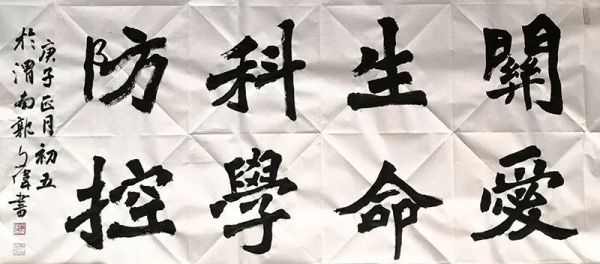 關愛
生命
科學
防控
庚子正月初五
於渭南郭偉書